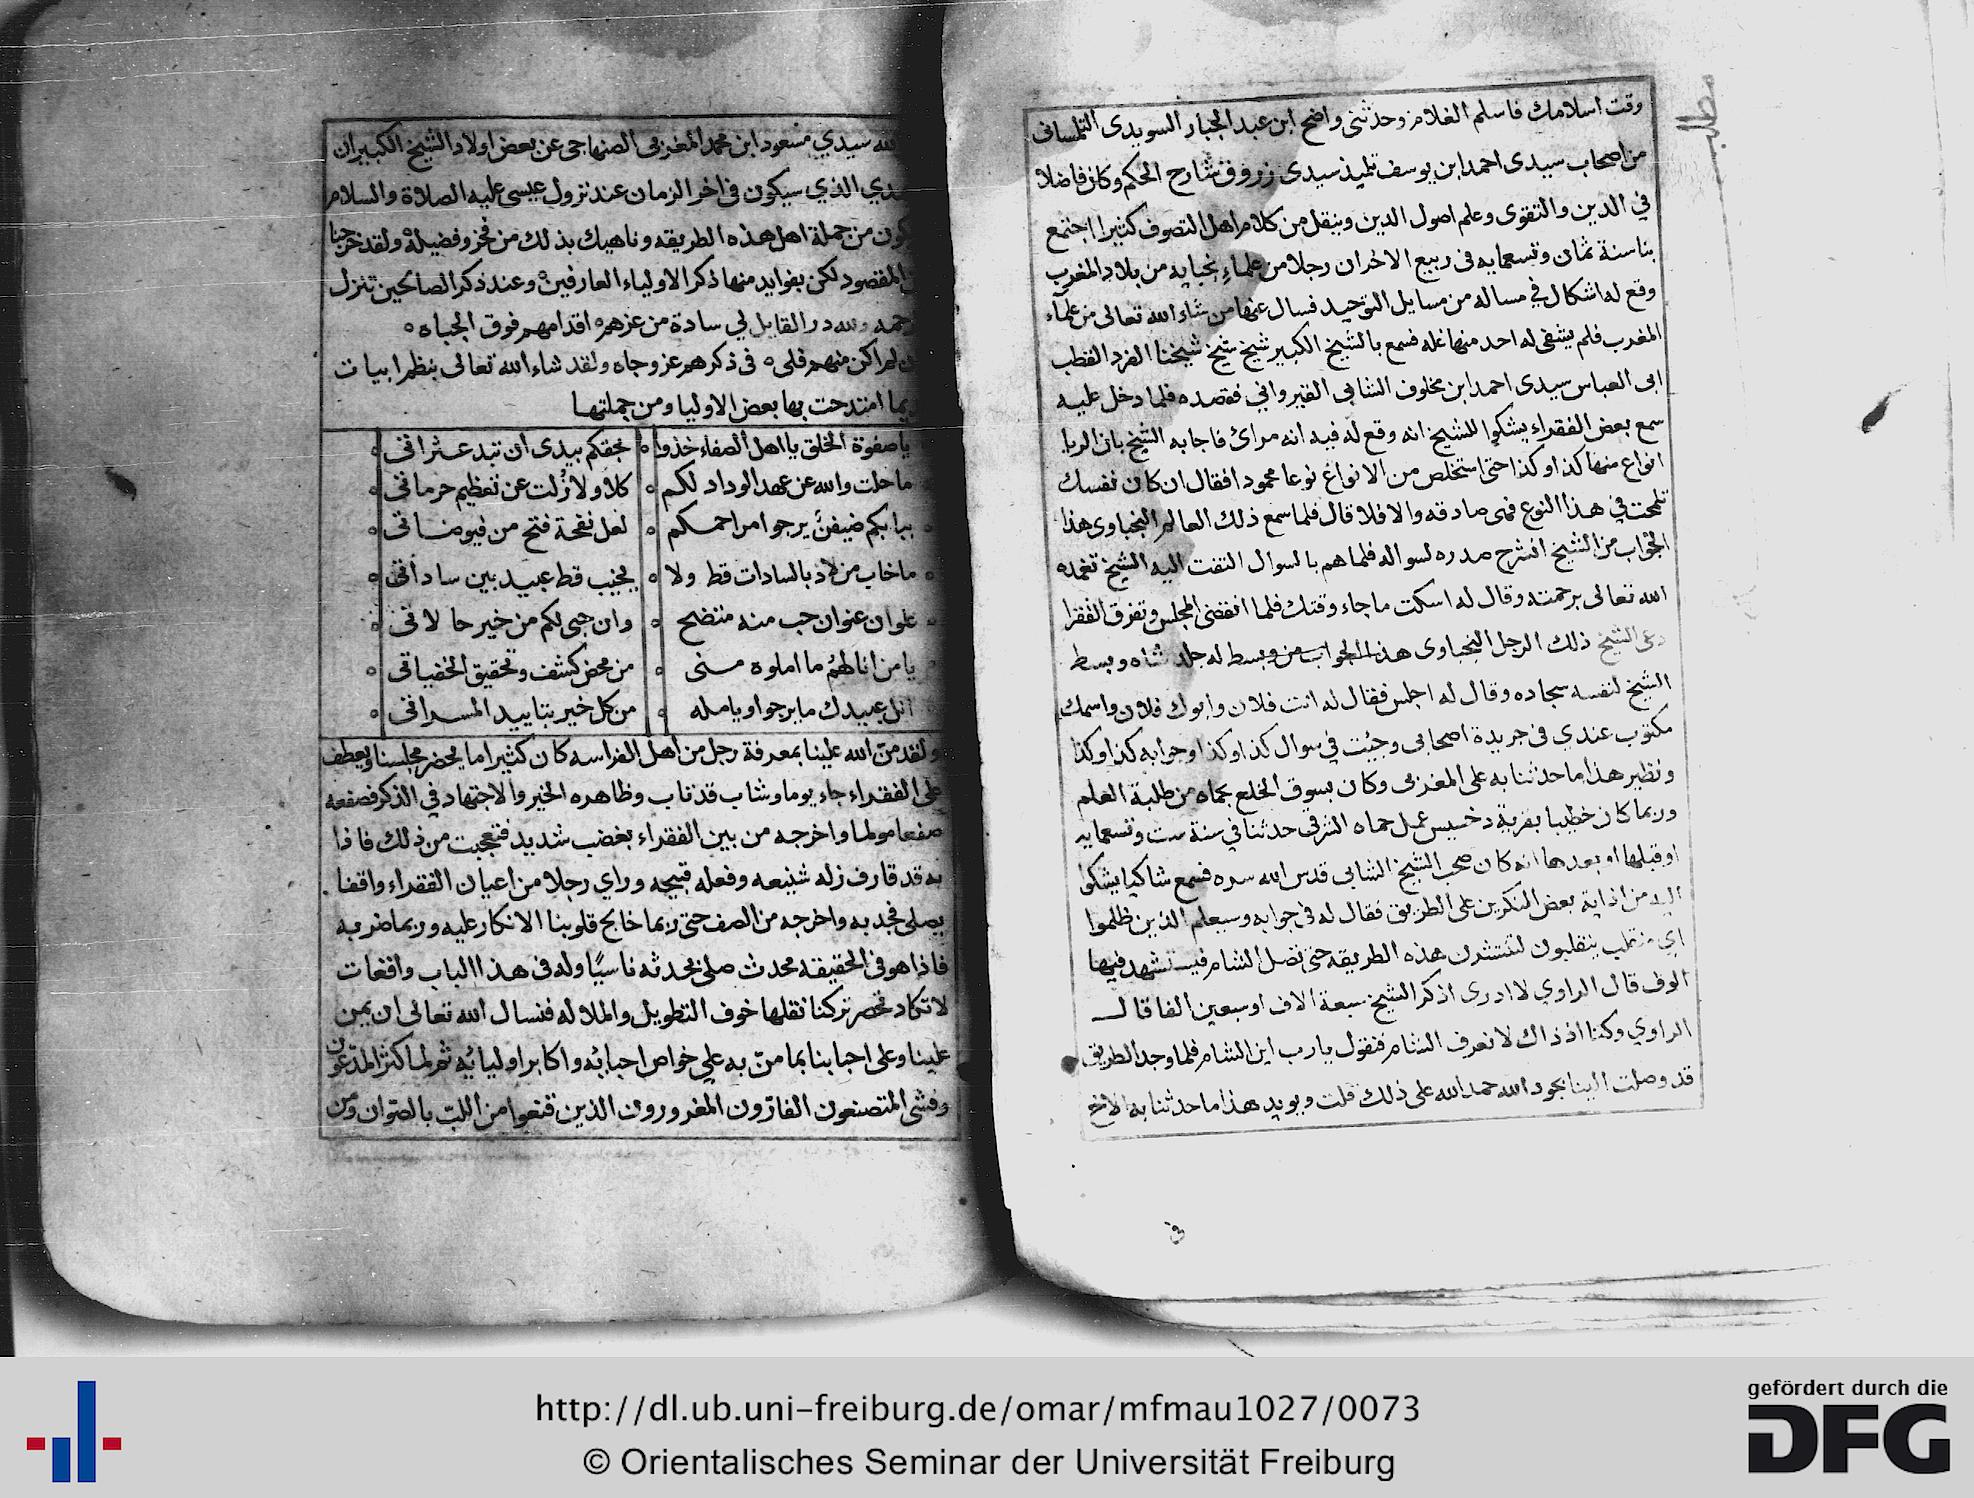 مطلب
وقت اسلامك فاسلم الغلام وحدثنى واضح ابن عبد الجبار السويدى التلمسانى
من اصحاب سيدى احمد ابن يوسف تلميذ سيدى زروق شارح الحكم وكان فاضلا
في الدين والتقوى وعلم اصول الدين وينقل من كلام اهل التصوف كثيرا اجتمع
بنا سنة ثمان وتسعمايه فى ربيع الاخر ان رجلا من علماء بجايه من بلاد المغرب
وقع له اشكال في مساله من مسايل التوحيد فسال عنها من شاء الله تعالى من علمآء
المغرب فلم يشفى له احد منها غله فسمع بالشيخ الكبير شيخ شيخ شيخنا الفرد القطب
ابى العباس سيدى احمد ابن مخلوف الشابى القيروانى فقصده فلما دخل عليه
سمع بعض الفقراء يشكوا للشيخ انه وقع له فيه انه مرائ فاجابه الشيخ بان الريا
انواع منها كذا وكذا حتى استخلص من الانواع نوعا محمودا فقال ان كان نفسك
تلمحت في هذا النوع فهى صادقه والا فلا قال فلما سمع ذلك العالم البجباوى هذا
الجواب من الشيخ انشرح صدره لسواله فلما هم بالسوال التفت اليه الشيخ تغمده
الله تعالى برحمته وقال له اسكت ما جاء وقتك فلما انقضى المجلس وتفرق الفقرا
دعى الشيخ ذلك الرجل البجباوى هذا الجواب من وبسط له جلد شاه وبسط
الشيخ لنفسه سجاده وقال له اجلس فقال له انت فلان وابوك فلان واسمك
مكتوب عندي فى جريدة اصحابى وجئت في سوال كذا وكذا وجوابه كذا وكذا
ونظير هذا ما حدثنا به على المغربى وكان بسوق الخلع بحماه من طلبة العلم
وربما كان خطيبا بقرية دخسيس عمل حماه الشرقى حدثنا في سنة ست وتسعمايه
او قبلها او بعدها انه كان صحب الشيخ الشابى قدس الله سره فسمع شاكيا يشكوا
اليه من اذاية بعض المنكرين على الطريق فقال له فى جوابه وسيعلم الذين ظلموا
اي منقلب ينقلبون لتنتشرن هذه الطريقه حتى تصل الشام فيستشهد فيها
الوف قال الراوي لا ادرى اذكر الشيخ سبعة الاف او سبعين الفا قال
الراوي وكنا اذ ذاك لا نعرف الشام فنقول يارب اين الشام فلما وجد الطريق
قد وصلت الينا بجود الله حمد الله على ذلك قلت ويويد هذا ما حدثنا به الاخ
فى
الله سيدي مسعود ابن محمد المغربى الصنهاجى عن بعض اولاد الشيخ الكبير ان
الذي سيكون فى اخر الزمان عند نزول عيسى عليه الصلاة والسلام
من جملة اهل هذه الطريقه وناهيك بذلك من فخر وفضيلة ولقد خرجنا
المقصود لكن بفوايد منها ذكر الاولياء العارفين وعند ذكر الصالحين تنزل
ولله در القايل لي سادة من عزهم اقدامهم فوق الجباه
لم اكن منهم فلى فى ذكرهم عز وجاه ولقد شاء الله تعالى بنظم ابيات
ربما امتدحت بها بعض الاوليا ومن جملتها
يا صفوة الخلق يا اهل الصفاء خذوا بحقكم بيدى ان تبد عثراتى
ما حلت والله عن عهد الوداد لكم كلا ولا زلت عن تعظيم حرماتى
ببابكم ضيفن يرجو امراحمكم لعل نفحة فتح من فيوضاتى
ما خاب من لاذ بالسادات قط ولا يخيب قط عبيد بين ساداتى
علوان عنوان حب منه متضح وان حبى لكم من خير حالاتى
يا من انالهم ما املوه منى من محض كشف وتحقيق الخفياتى
انل عبيدك ما يرجوا ويامله من كل خير بتاييد المسراتى
ولقد من الله علينا بمعرفة رجل من اهل الفراسه كان كثيرا ما يحضر مجلسنا ويعطف
على الفقراء جاء يوما وشاب قد تاب وظاهره الخير والاجتهاد في الذكر فصفعه
صفعا مولما واخرجه من بين الفقراء بغضب شديد فتعجبت من ذلك فاذا
به قد قارف زله شنيعه وفعله قبيحه وراي رجلا من اعيان الفقراء واقفا
يصلى فجدبه واخرجه من الصف حتى ربما خالج قلوبنا الانكار عليه وربما ضربه
فاذا هو فى الحقيقه محدث صلى بحدثه ناسيا وله فى هذا الباب واقعات
لا تكاد تحصر تركنا نقلها خوف التطويل والملاله فنسال الله تعالى ان يمن
علينا وعلى احبابنا بما من به على خواص احبائه واكابر اوليائه ثم لما كثر المدعون
وفشى المتصنعون الفارون المغرورون الذين قنعوا من اللب بالصوان ومن
http://dl.ub.uni-freiburg.de/omar/mfmau1027/0073
© Orientalisches Seminar der Universität Freiburg
gefördert durch die
DFG